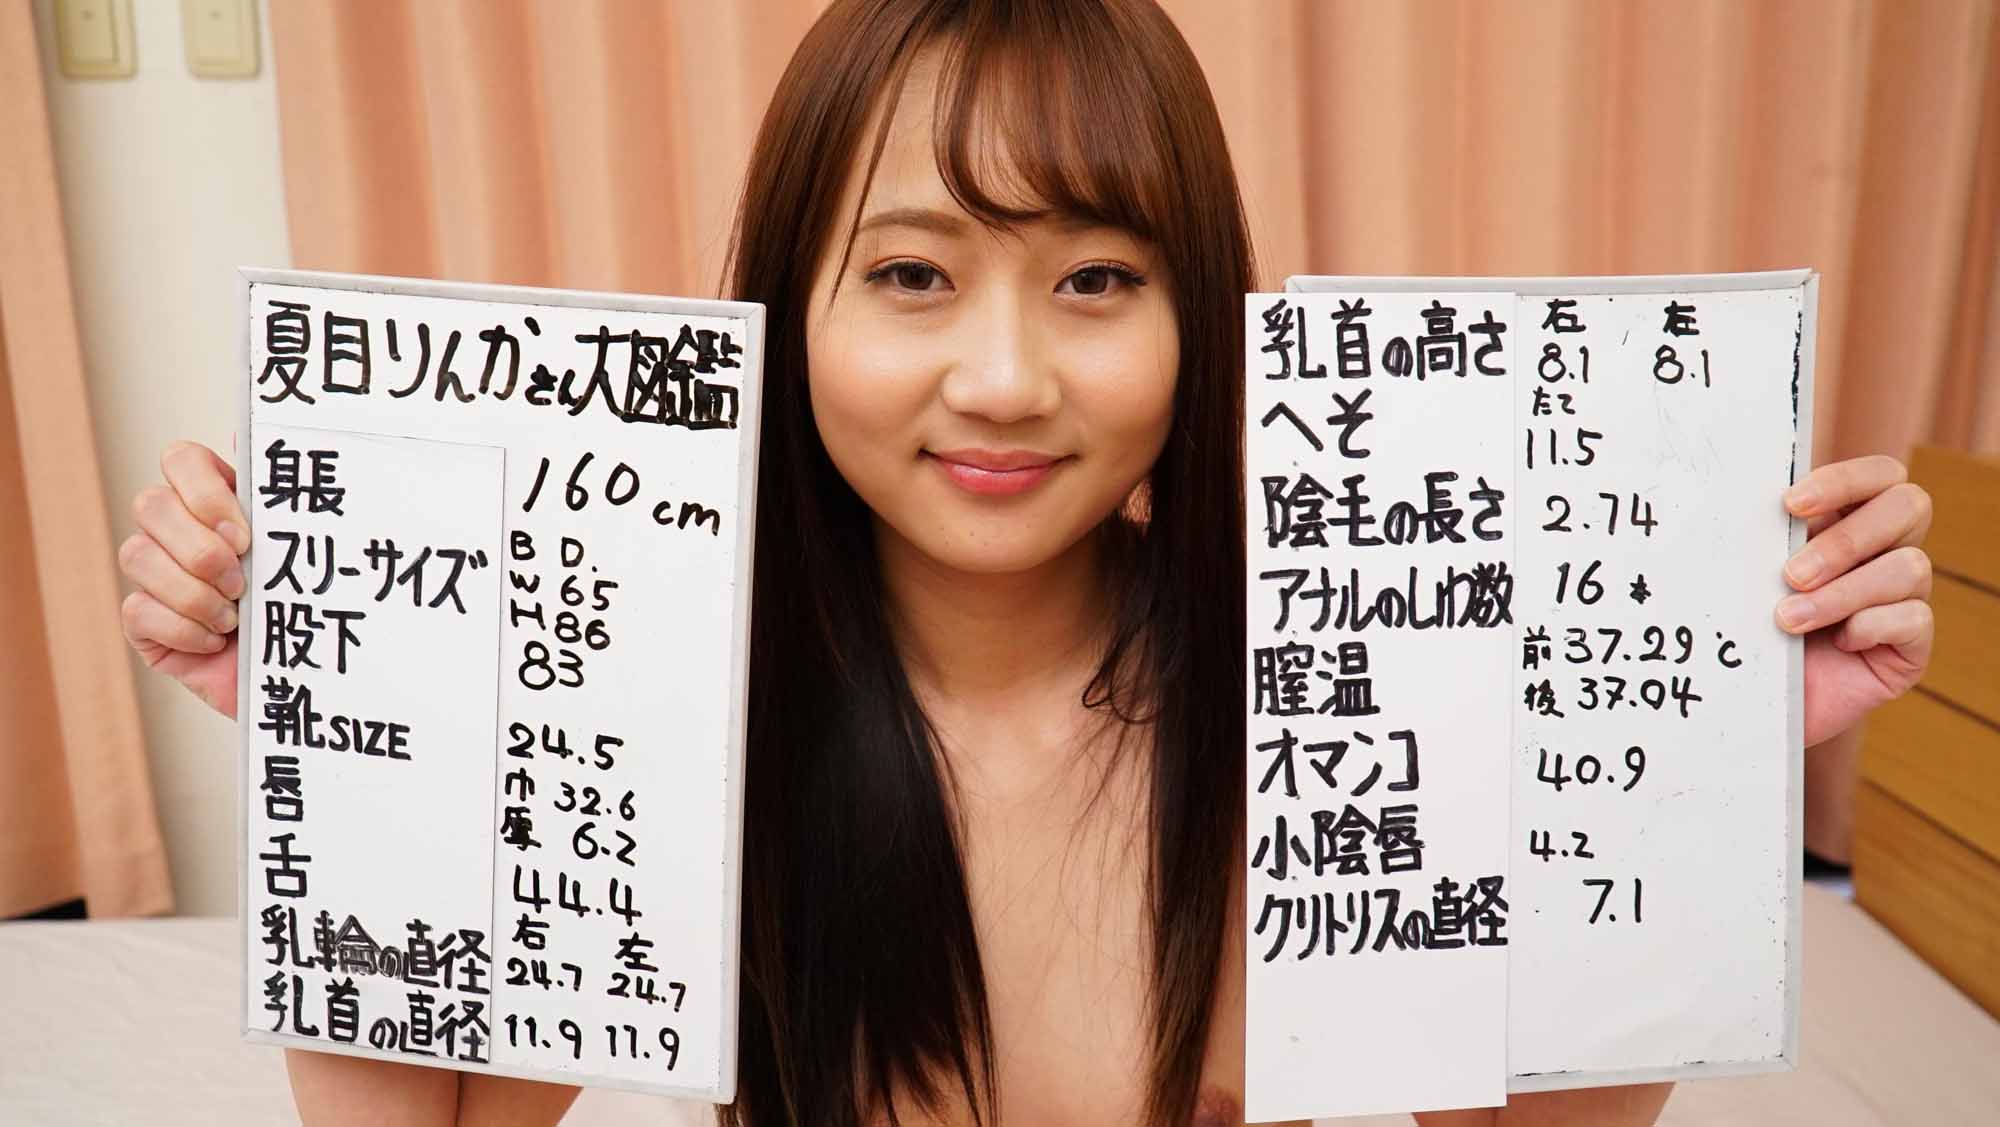 夏目りんかさん大図鑑
身長 160cm
スリーサイズ B D.
W 65
H 86
股下 83
靴SIZE 24.5
唇 巾 32.6
厚 6.2
舌 44.4
右 左
乳輪の直径 24.7 24.7
乳首の直径 11.9 11.9
右 左
乳首の高さ 8.1 8.1
へそ たて
11.5
陰毛の長さ 2.74
アナルのしわ数 16本
膣温 前 37.29℃
後 37.04
オマンコ 40.9
小陰唇 4.2
クリトリスの直径 7.1